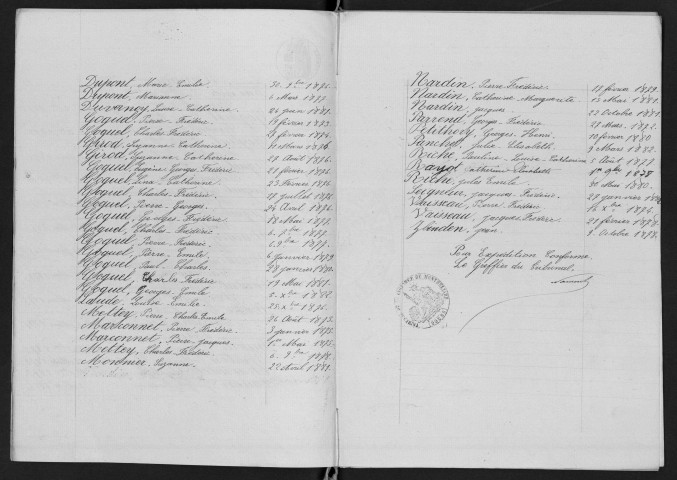 Dupont, Marie Emilie 30. xbre 1876.
Dupont, Marianne 6 Mars 1877.
Duvernoy, Louise Catherine 24 juin 1881.
Goguel, Pierre Frédéric 14 février 1873.
Goguel, Charles Frédéric 28 février 1874.
Girod, Suzanne Catherine 10 Mars 1876.
Girod, Suzanne Catherine 27 Août 1876.
Goguel, Eugène Georges Frédéric 21 février 1876.
Goguel, Lina Catherine 23 février 1876.
Goguel, Charles Frédéric 17 juillet 1876.
Goguel, Pierre Georges. 24 Avril 1876.
Goguel, Georges Frédéric 18 Mai 1877.
Goguel, Charles Frédéric 6. 1877.
Goguel, Pierre Frédéric 6 9bre 1877.
Goguel, Pierre Emile 6 janvier 1879.
Goguel, Paul Charles 28 janvier 1880.
Goguel, Charles Frédéric 19 Mai 1881.
Goguel, Georges Emile 5. xbre 1882.
Lalude, Louise Emilie 25. xbre 1876.
Meltey, Pierre Charles Emile 26 Août 1873.
Marconnet, Pierre Frédéric 3 janvier 1875.
Marconnet, Pierre Jacques 1er Mai 1875.
Mettey, Charles Frédéric 6. 9bre 1878.
Monnier, Suzanne. 22 Avril 1881.
Nardin, Pierre Frédéric 17 février 1879.
Nardin, Catherine Marguerite 12 Mai 1881.
Nardin, Jacques 22 Octobre 1881.
Perrend, Georges Frédéric 27 Mars 1875.
Petithory, Georges Henri 10 février 1880.
Panchot, Julie Elisabeth 9 Mars 1882.
Riche, Pauline Louise Catherine 5 Août 1877.
Rayot, Catherine Elisabeth 1er 9bre 1878
Riche, Jules Emile 30 Mai 1880.
Surdan, Jacques Frédéric 27 janvier 1874
Vuisseau, Pierre Frédéric 16 xbre 1874.
Vaisseau, Jacques Frédéric 21 février 1878.
Zlanden, Jean 9 Octobre 1878.
Pour Expédition Conforme.
Le Greffier du Tribunal.